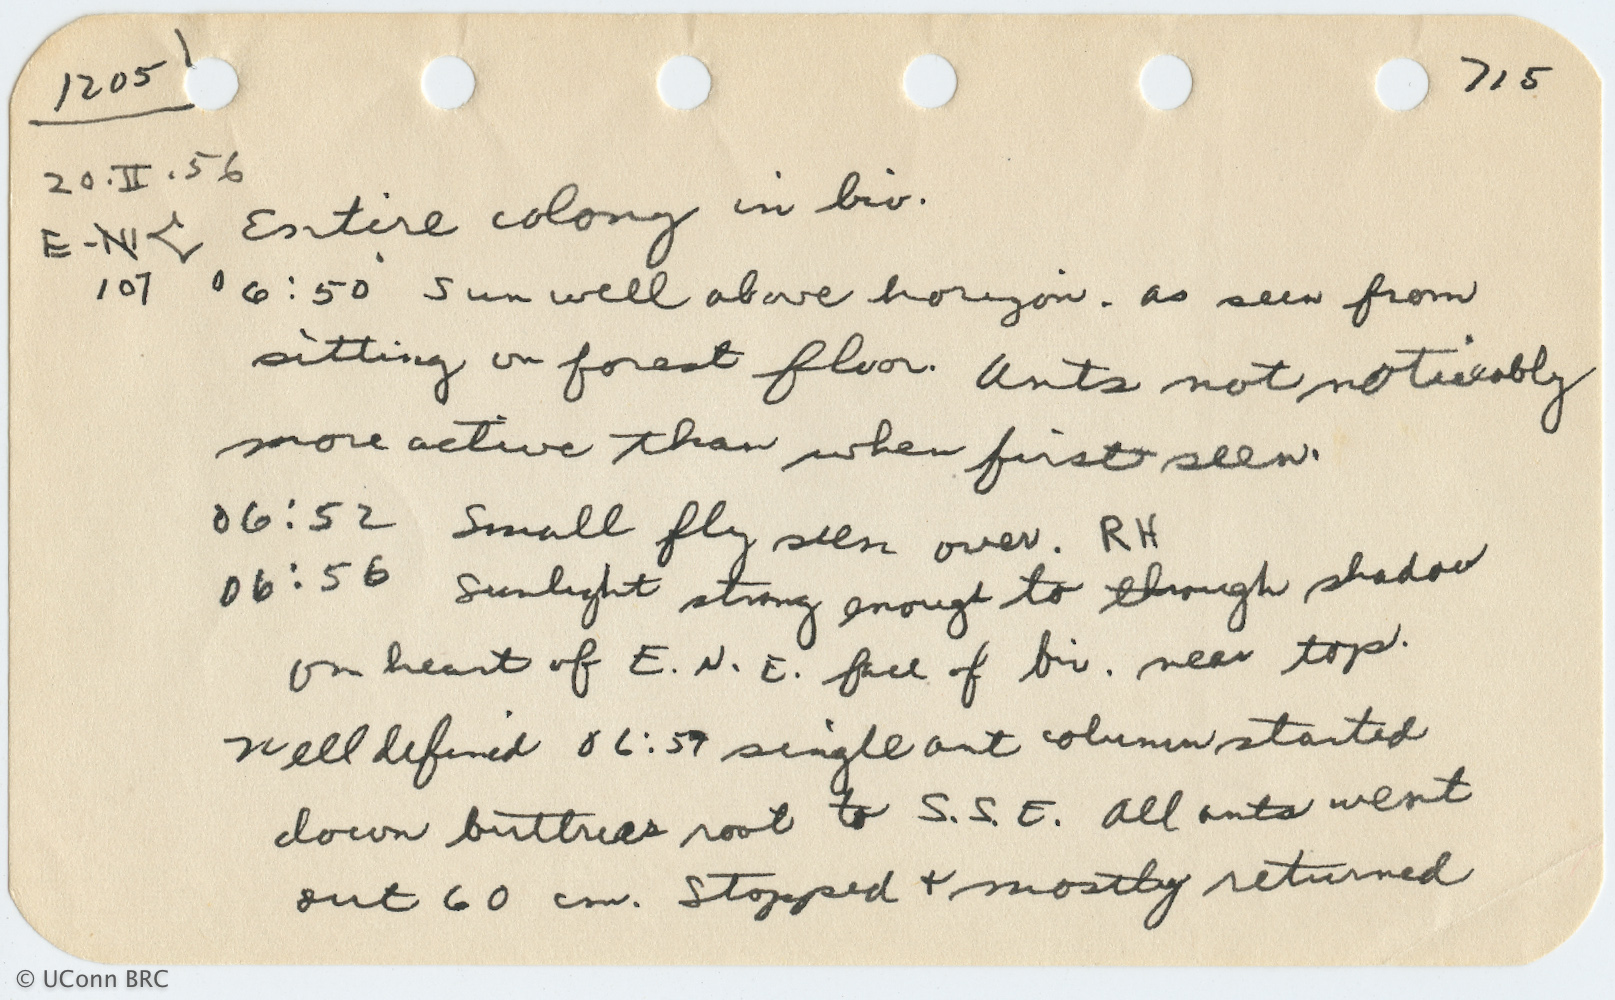 1205 715
20.II.56
E-N Entire colony in biv.
107 06:50 Sun well above horizon. as seen from
sitting on forest floor. Ants not noticably
more active than when first seen.
06:52 Small fly seen over. RH
06:56 Sunlight strong enough to through shadow
on heart of E.N.E. face of biv. near top.
Well defined 06:59 single ant column started
down buttress root to S.S.E. All ants went
out 60 cm. Stopped + mostly returned
© UConn BRC